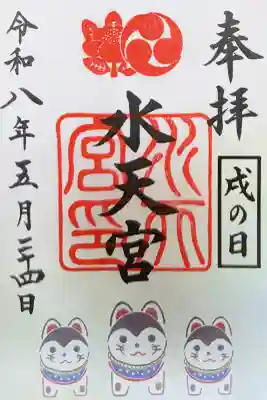 奉拝
戌の日
水天宮
水天
宮印
令和八年五月二十四日